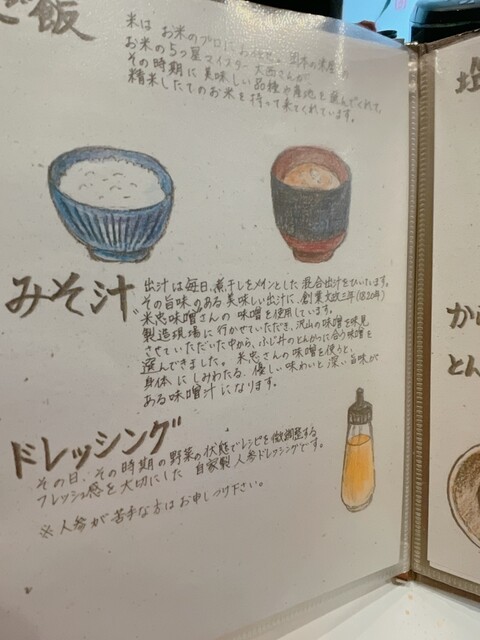 ご飯
米は お米のプロにおまかせ。
お米の5つ星マイスター 大西さんが、
その時期に美味しい品種や産地を選んでくれて、
精米したてのお米を持って来てくれています。
みそ汁
出汁は毎日、煮干しをメインとした混合出汁をひいています。
その旨味のある美味しい出汁に、創業文政三年(1820年)
"米忠味噌"さんの味噌を使用しています。
製造現場に行かせていただき、沢山の味噌を味見
させていただいた中から、ふじ井のとんかつに合う味噌を
選んできました。米忠さんの味噌を使うと、
身体にしみわたる、優しい味わいと深い旨味が
ある味噌汁になります。
ドレッシング
その日、その時期の野菜の状態でレシピを微調整する
フレッシュ感を大切にした 自家製人参ドレッシングです。
※人参が苦手な方はお申しつけ下さい。
から
とん